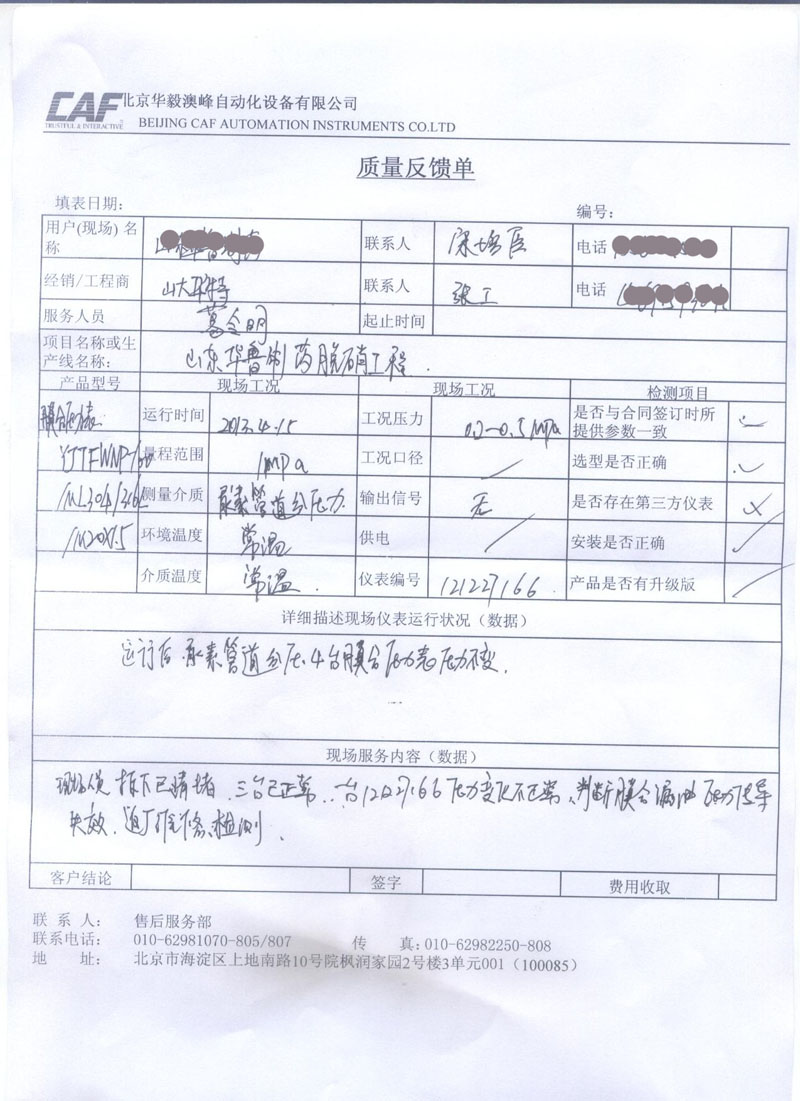 CAF 北京华毅澳峰自动化设备有限公司
TRUSTFUL & INTERACTIVE BEIJING CAF AUTOMATION INSTRUMENTS CO.LTD
质量反馈单
填表日期: 编号:
用户(现场) 名称 联系人 电话
经销/工程商 山大华特 联系人 张工 电话
服务人员 葛会明 起止时间
项目名称或生产线名称: 山东华鲁制药脱硝工程.
产品型号 现场工况 现场工况 检测项目
膜合压力表 运行时间 2013.4.15 工况压力 0.2-0.5MPa 是否与合同签订时所提供参数一致 ✓
YJTFWNP-100 量程范围 1MPa 工况口径 / 选型是否正确 ✓
/ML304/316L 测量介质 尿素管道分压力. 输出信号 无 是否存在第三方仪表 ×
/M20X1.5 环境温度 常温 供电 / 安装是否正确 ✓
介质温度 常温. 仪表编号 121227166. 产品是否有升级版
详细描述现场仪表运行状况（数据）
尿素管道分压.4台膜合压力表压力不变.
现场服务内容（数据）
拆下已清堵.三台已正常.一台121227166压力变化不正常、判断膜合漏油 压力传导
失效.返厂维修、检测.
客户结论 签字 费用收取
联 系 人: 售后服务部
联系电话: 010-62981070-805/807 传 真: 010-62982250-808
地 址: 北京市海淀区上地南路10号院枫润家园2号楼3单元001（100085）